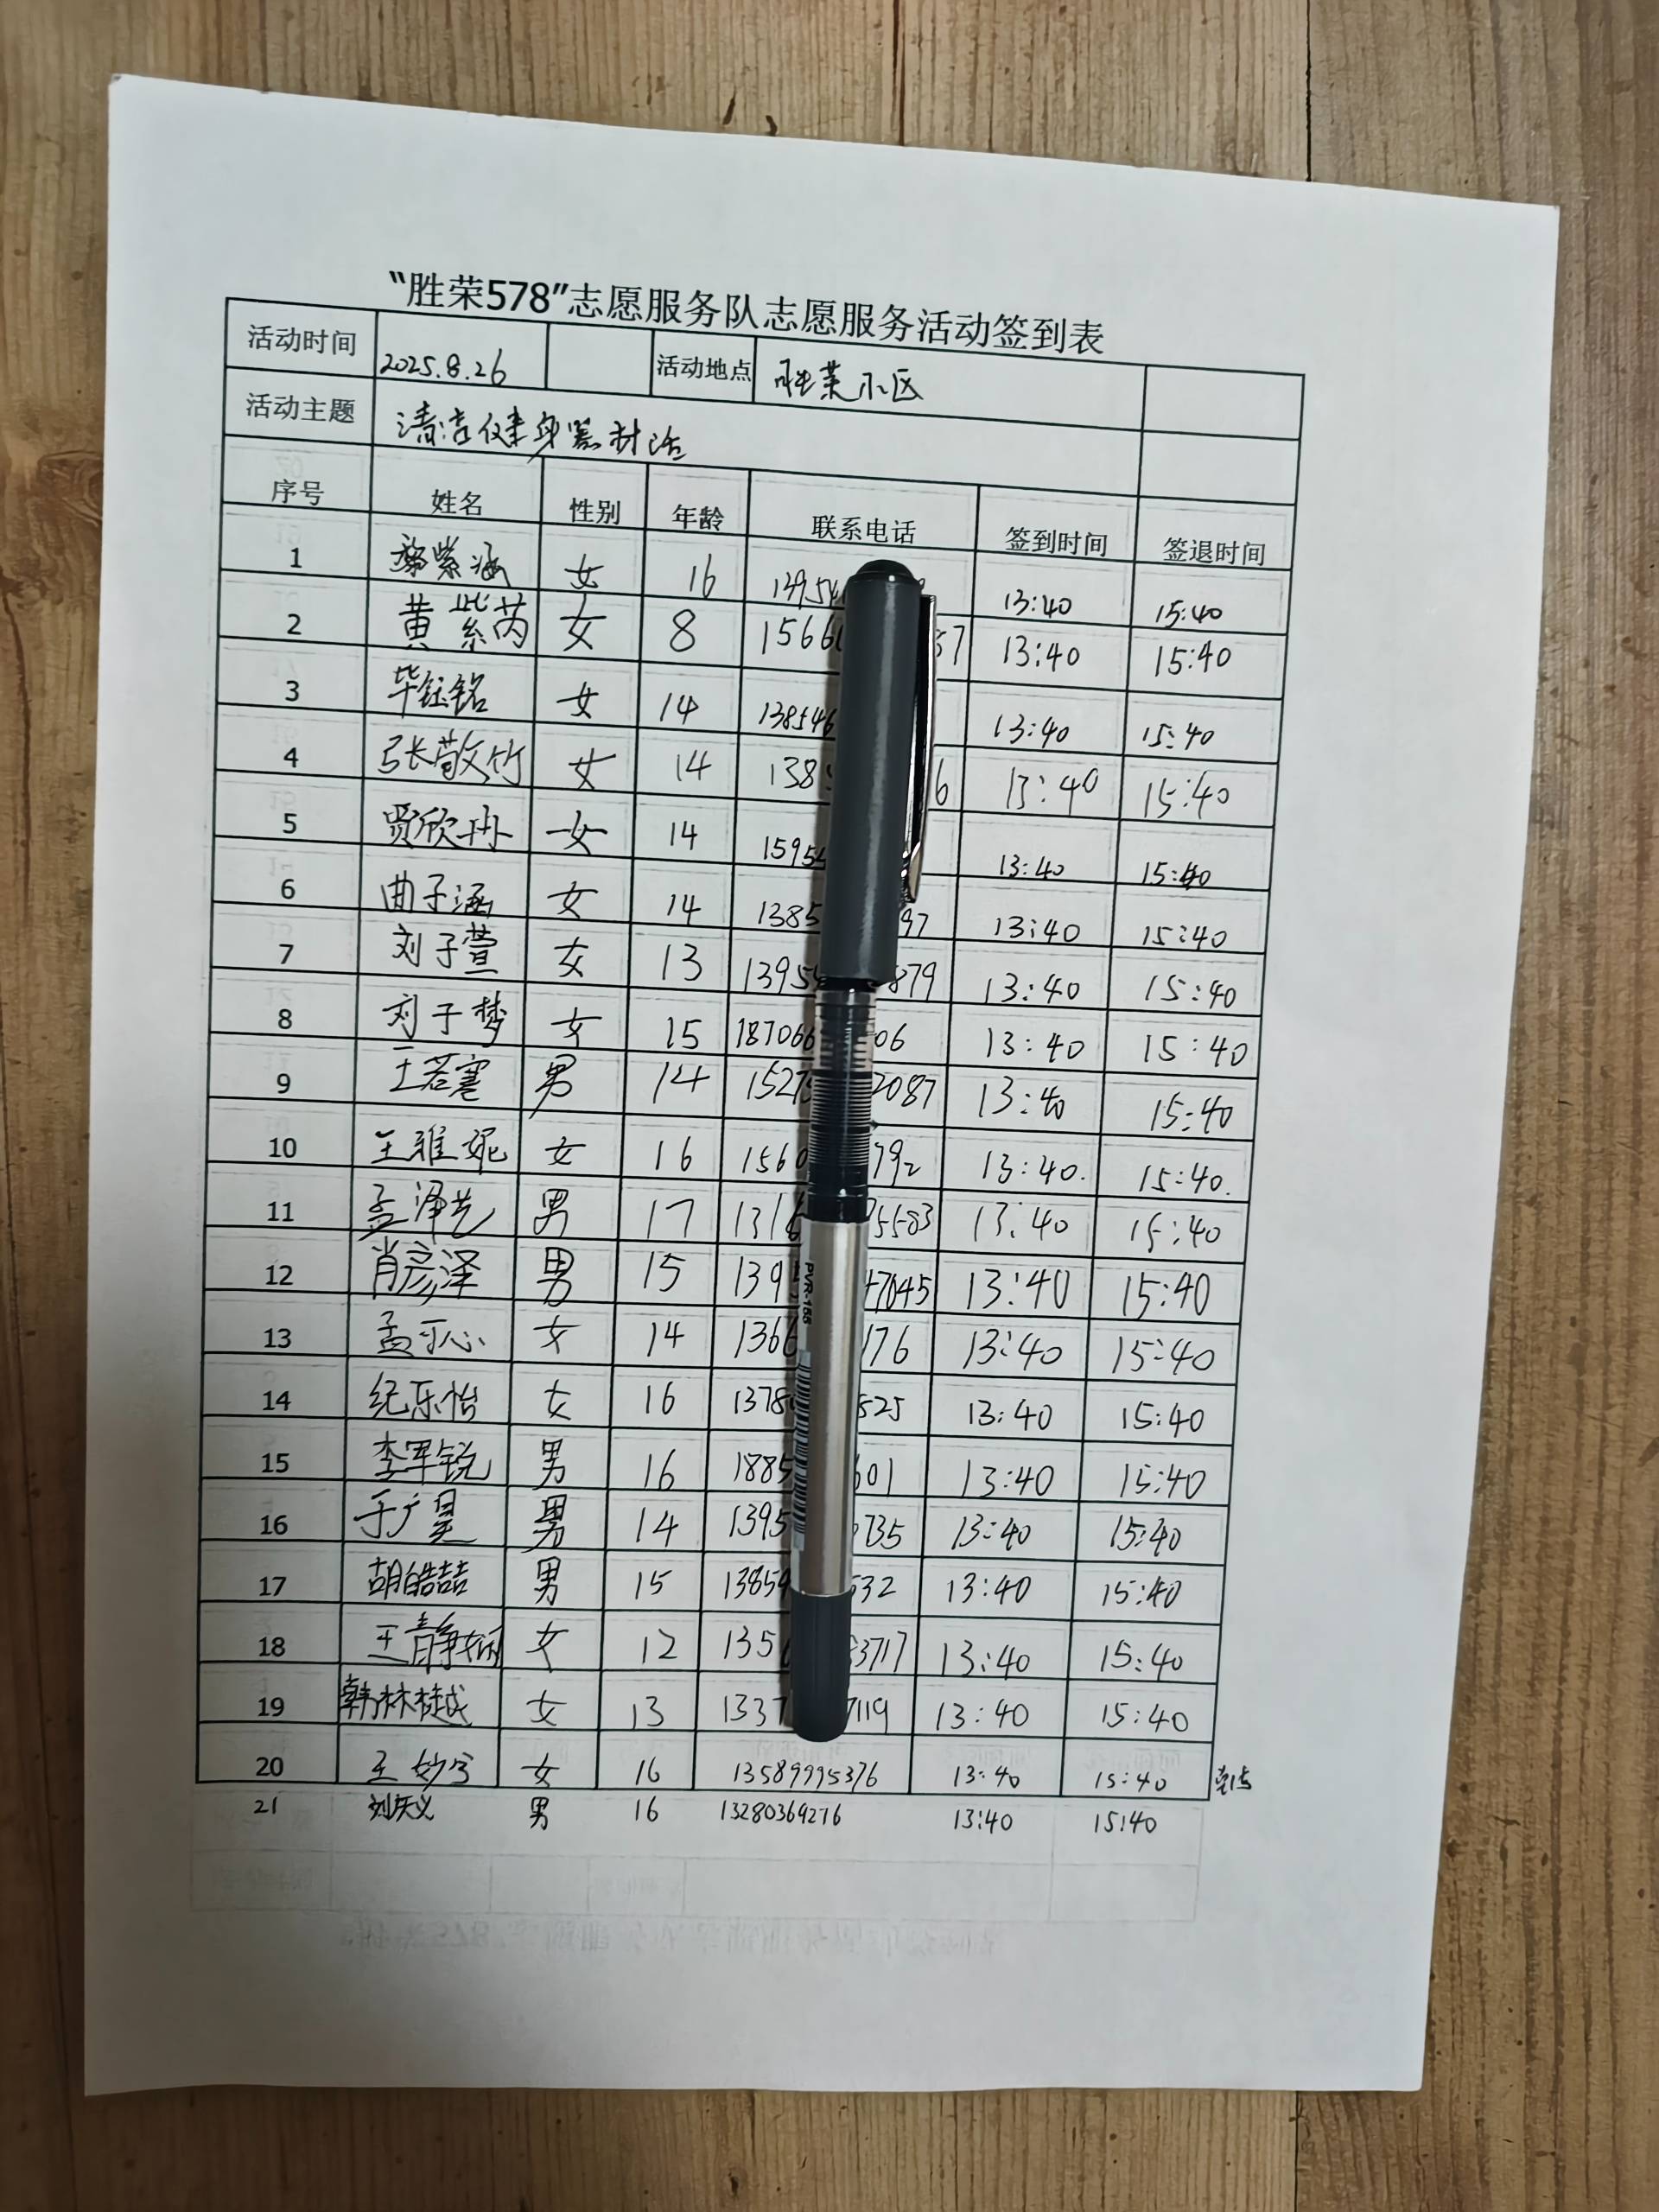 “胜荣578”志愿服务队志愿服务活动签到表
活动时间 2025.8.26 活动地点 胜荣小区
活动主题 清洁健身器材
序号 姓名 性别 年龄 联系电话 签到时间 签退时间
1 紫涵 女 16 139 13:40 15:40
2 黄紫芮 女 8 1566 57 13:40 15:40
3 毕钰铭 女 14 138546 13:40 15:40
4 张敬文竹 女 14 138 6 13:40 15:40
5 贾欣冉 女 14 1595 13:40 15:40
6 曲子涵 女 14 1385 97 13:40 15:40
7 刘子萱 女 13 1395 879 13:40 15:40
8 刘子梦 女 15 187066 06 13:40 15:40
9 王若骞 男 14 1527 2087 13:40 15:40
10 王雅妮 女 16 1560 792 13:40. 15:40.
11 孟泽 男 17 131 5583 13:40 15:40
12 肖彦泽 男 15 139 47045 13:40 15:40
13 孟可心 女 14 1366 176 13:40 15:40
14 纪乐怡 女 16 1378 525 13:40 15:40
15 李军锐 男 16 1885 601 13:40 15:40
16 于广昊 男 14 1395 735 13:40 15:40
17 胡皓喆 男 15 1385 532 13:40 15:40
18 王静 女 12 135 3717 13:40 15:40
19 韩林樾 女 13 1337 7119 13:40 15:40
20 王妙 女 16 13589995376 13:40 15:40
21 刘天义 男 16 13280369276 13:40 15:40